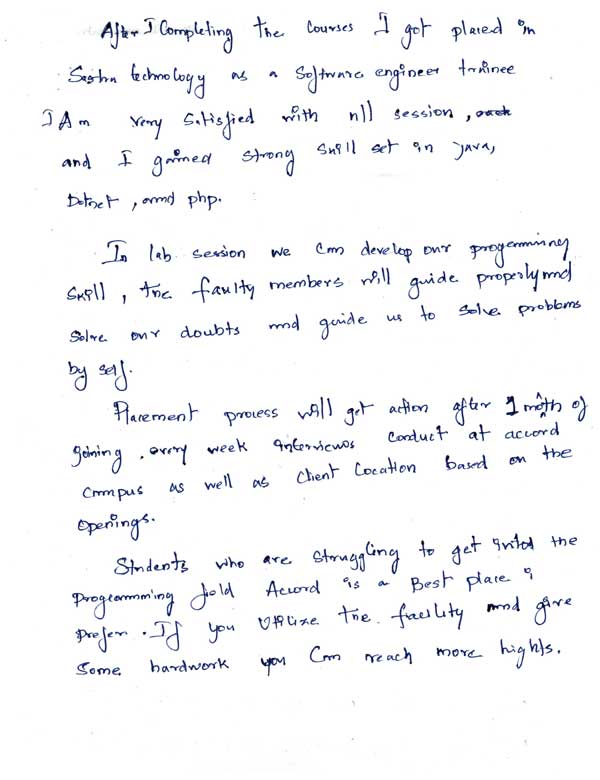 After I Completing the Courses I got placed in
Seshn technology as a Software engineer trainee
I Am very Satisfied with all session,
and I gained strong Skill set in java,
Dotnet, and php.
In lab session we Can develop our progeramming
Skill, the faulty members will guide properly and
Solve our doubts and guide us to Solve problems
by self.
Placement process will get action after 1 month of
joining. every week interviews conduct at accord
Campus as well as Client Location Based on the
Openings.
Students who are struggling to get into the
Programming field Accord is a Best place i
Prefer. If you Utilize the facility and give
Some hardwork you Can reach more highls.